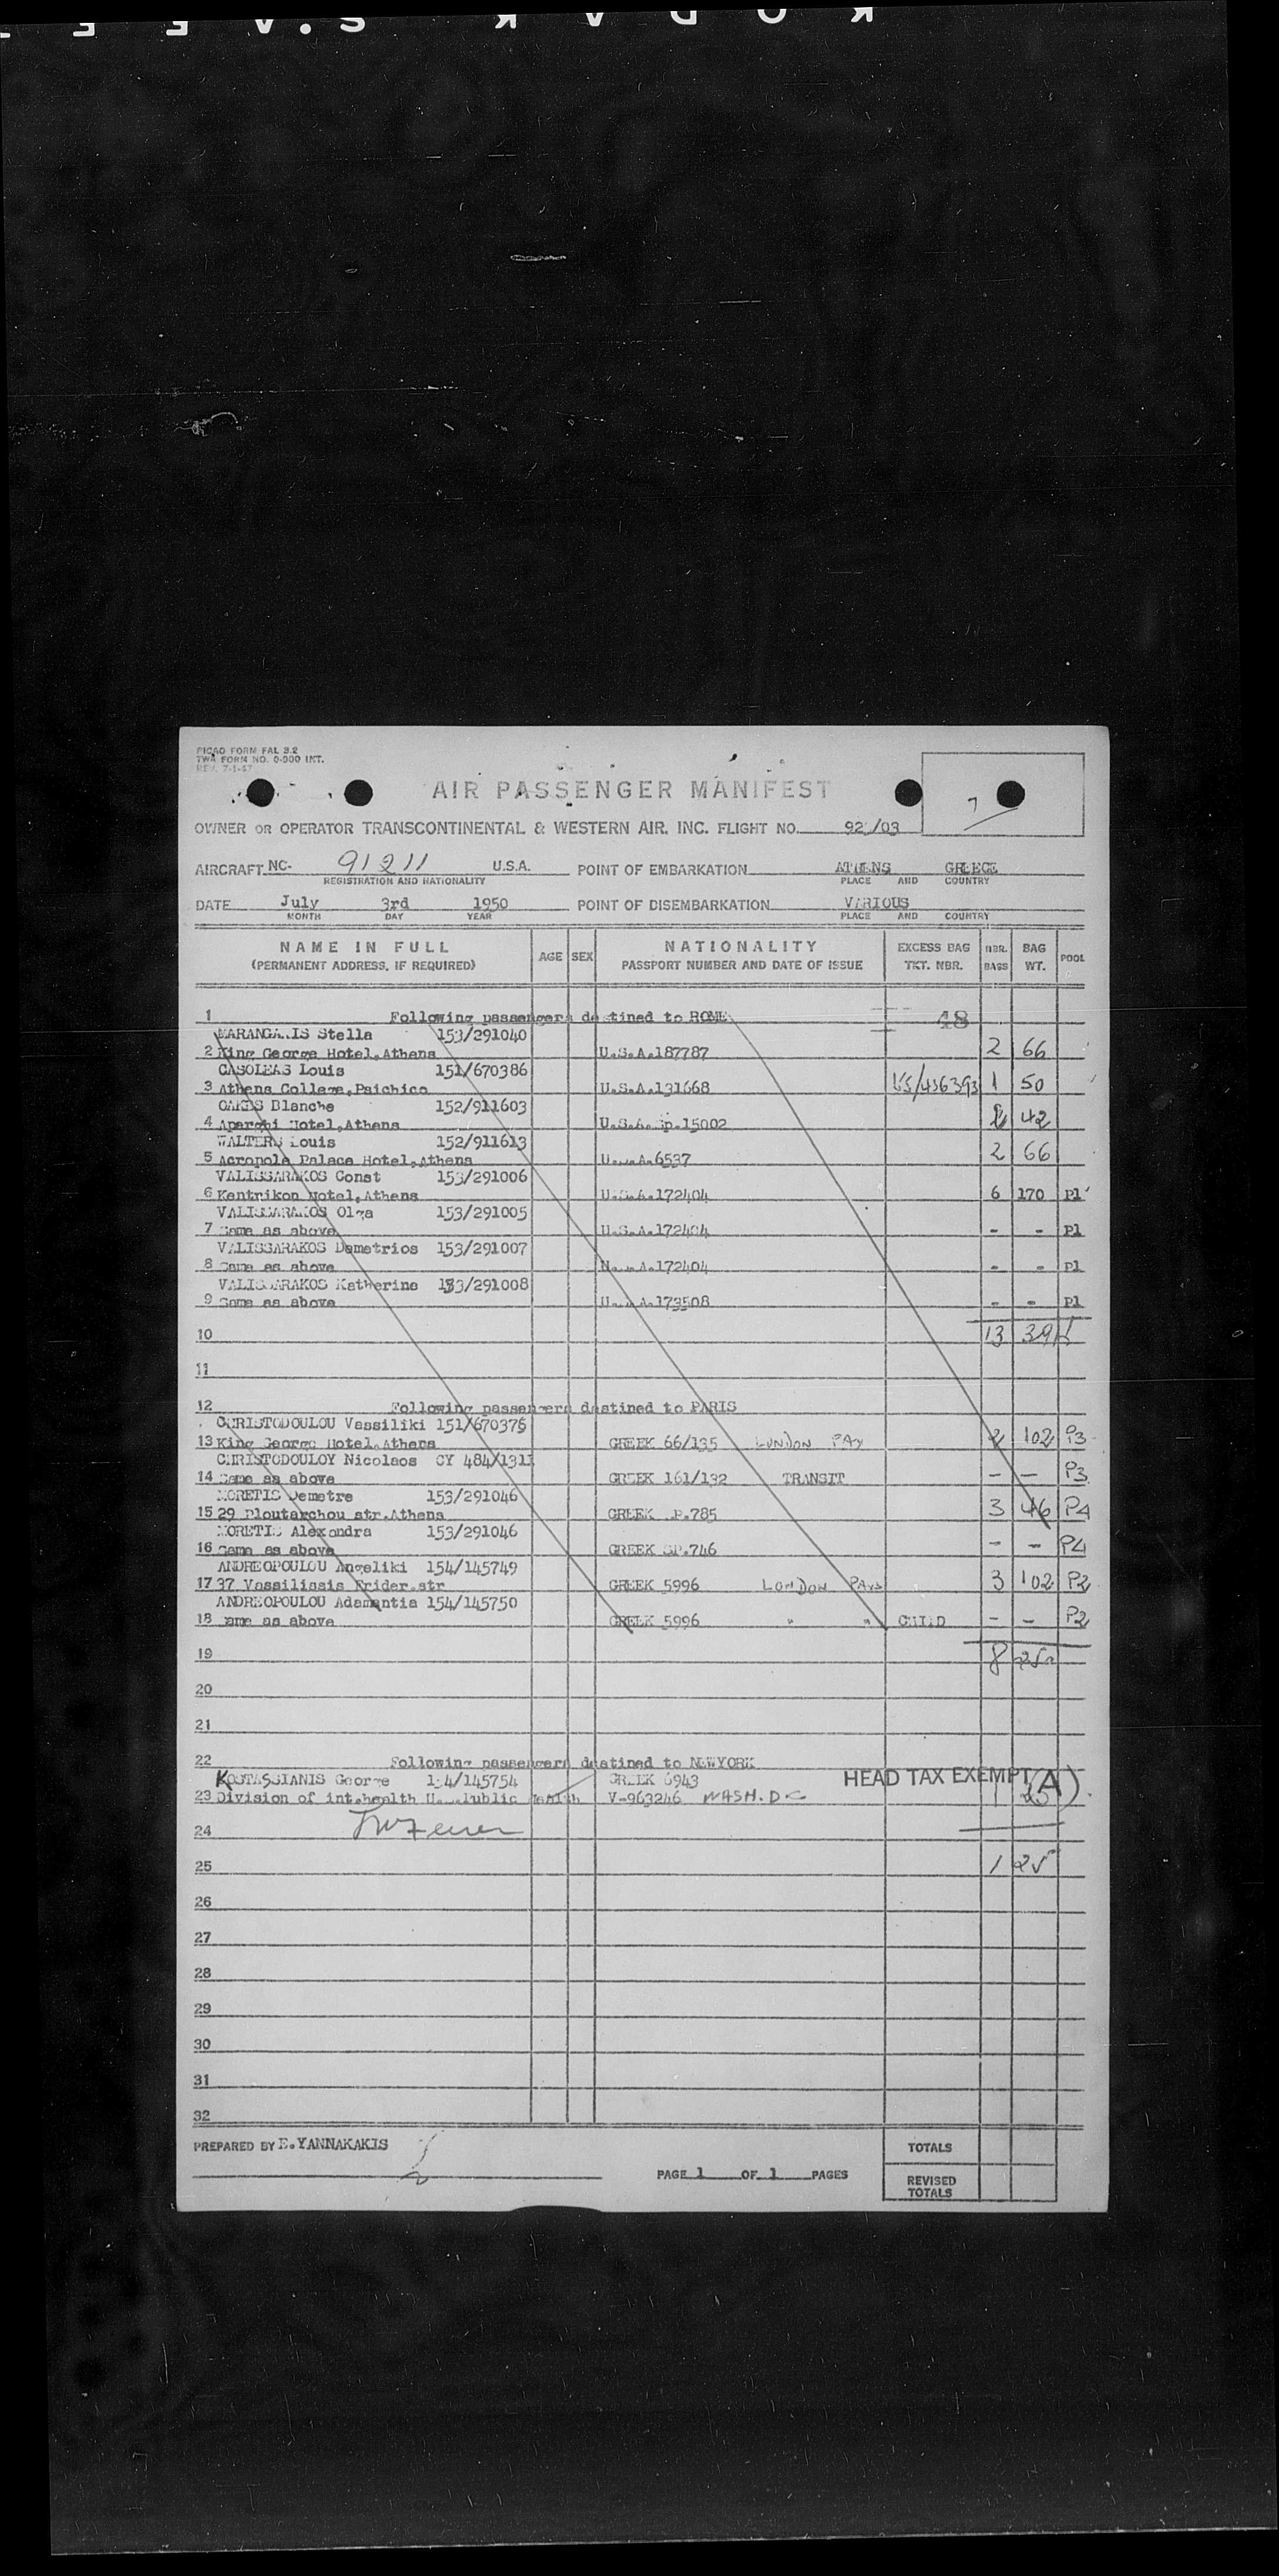 KODAK S.A.F.E.T
PICAO FORM FAL 3.2
TWA FORM NO. 0-900 INT.
REV. 7-1-47
AIR PASSENGER MANIFEST
7
OWNER OR OPERATOR TRANSCONTINENTAL & WESTERN AIR. INC. FLIGHT NO. /03
AIRCRAFT NC- 91211 U.S.A. POINT OF EMBARKATION ATHENS GREECE
REGISTRATION AND NATIONALITY PLACE AND COUNTRY
DATE July 3rd 1950 POINT OF DISEMBARKATION VARIOUS
MONTH DAY YEAR PLACE AND COUNTRY
NAME IN FULL AGE SEX NATIONALITY EXCESS BAG NBR. BAG POOL
(PERMANENT ADDRESS, IF REQUIRED) PASSPORT NUMBER AND DATE OF ISSUE TKT. NBR. BAGS WT.
1 Following passengers destined to ROME 48
Stella 153/291040
2 King George Hotel, Athens U.S.A.187787 2 66
CASOLEAS Louis 151/670386
3 Athens College, Psichico U.S.A.131668 1 50
OAKES Blanche 152/911603
4 Hotel, Athens U.S.A. Sp.15002 42
WALTERS Louis 152/911613
5 Acropole Palace Hotel, Athens U.S.A.6537 2 66
VALISSARAKOS Const 153/291006
6 Kentrikon Hotel, Athens U.S.A.172404 6 170 P1
VALISSARAKOS Olga 153/291005
7 Same as above U.S.A.172404 - - P1
VALISSARAKOS Demetrios 153/291007
8 Same as above U.S.A.172404 - - P1
VALISSARAKOS Katherine 153/291008
9 Same as above U.S.A.173508 - - P1
10 13 394
11
12 Following passengers destined to PARIS
CHRISTODOULOU Vassiliki 151/670376
13 King George Hotel, Athens GREEK 66/135 LONDON PAX 2 102 P3
CHRISTODOULOY Nicolaos CY 484/1311
14 Same as above GREEK 161/132 TRANSIT - - P3
MORETIS Demetre 153/291046
15 29 Ploutarchou str. Athens GREEK SP.785 3 46 P4
MORETIS Alexandra 153/291046
16 Same as above GREEK SP.746 - - P4
ANDREOPOULOU Angeliki 154/145749
17 37 Vassilissis Frider.str GREEK 5996 LONDON PAXS 3 102 P2
ANDREOPOULOU Adamantia 154/145750
18 Same as above GREEK 5996 " " CHILD - - P2
19 8 250
20
21
22 Following passengers destined to NEWYORK
KOUTASSIANIS George 154/145754 GREEK 6943 HEAD TAX EXEMPT (A)
23 Division of int.health U.S.Public Health V-963246 WASH. DC 1 25
24
25 1 25
26
27
28
29
30
31
32
PREPARED BY E. YANNAKAKIS TOTALS
PAGE 1 OF 1 PAGES REVISED TOTALS